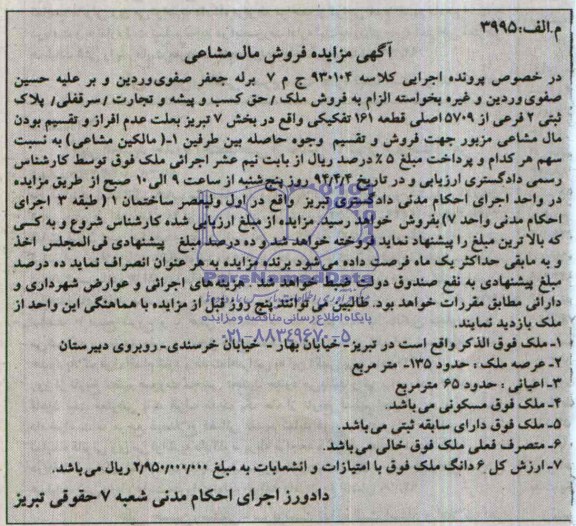 م.الف:۳۹۹۵
آگهی مزایده فروش مال مشاعی
در خصوص پرونده اجرایی کلاسه ۹۳۰۱۰۴ ج م ۷ برله جعفر صفوی‌وردین و بر علیه حسین
صفوی‌وردین و غیره بخواسته الزام به فروش ملک /حق کسب و پیشه و تجارت /سرقفلی/ پلاک
ثبتی ۲ فرعی از ۵۷۰۹ اصلی قطعه ۱۶۱ تفکیکی واقع در بخش ۷ تبریز بعلت عدم افراز و تقسیم بودن
مال مشاعی مزبور جهت فروش و تقسیم وجوه حاصله بین طرفین ۱-( مالکین مشاعی) به نسبت
سهم هر کدام و پرداخت مبلغ ۵٪ درصد ریال از بابت نیم عشر اجرائی ملک فوق توسط کارشناس
رسمی دادگستری ارزیابی و در تاریخ ۹۴/۴/۴ روز پنج‌شنبه از ساعت ۹ الی ۱۰ صبح از طریق مزایده
در واحد اجرای احکام مدنی دادگستری تبریز واقع در اول ولیعصر ساختمان ۱ ( طبقه ۳ اجرای
احکام مدنی واحد ۷) بفروش خواهد رسید. مزایده از مبلغ ارزیابی شده کارشناس شروع و به کسی
که بالا ترین مبلغ را پیشنهاد نماید فروخته خواهد شد و ده درصد مبلغ پیشنهادی فی‌المجلس اخذ
و به مابقی حداکثر یک ماه فرصت داده می‌شود برنده مزایده به هر عنوان انصراف نماید ده درصد
مبلغ پیشنهادی به نفع صندوق دولت ضبط خواهد شد. هزینه‌های اجرائی و عوارض شهرداری و
دارائی مطابق مقررات خواهد بود. طالبین می توانند پنج روز قبل از مزایده با هماهنگی این واحد از
ملک بازدید نمایند.
پایگاه اطلاع رسانی مناقصه و مزایده
۰۲۱-۸۸۳۴۹۶۷۰-۵
ParsNamadData
۱- ملک فوق الذکر واقع است در تبریز- خیابان بهار - خیابان خرسندی- روبروی دبیرستان
۲- عرصه ملک : حدود ۱۳۵- متر مربع
۳- اعیانی : حدود ۶۵ مترمربع
۴- ملک فوق مسکونی می‌باشد.
۵- ملک فوق دارای سابقه ثبتی می‌باشد.
۶- متصرف فعلی ملک فوق خالی می‌باشد.
۷- ارزش کل ۶ دانگ ملک فوق با امتیازات و انشعابات به مبلغ ۲/۹۵۰/۰۰۰/۰۰۰ ریال می‌باشد.
دادورز اجرای احکام مدنی شعبه ۷ حقوقی تبریز